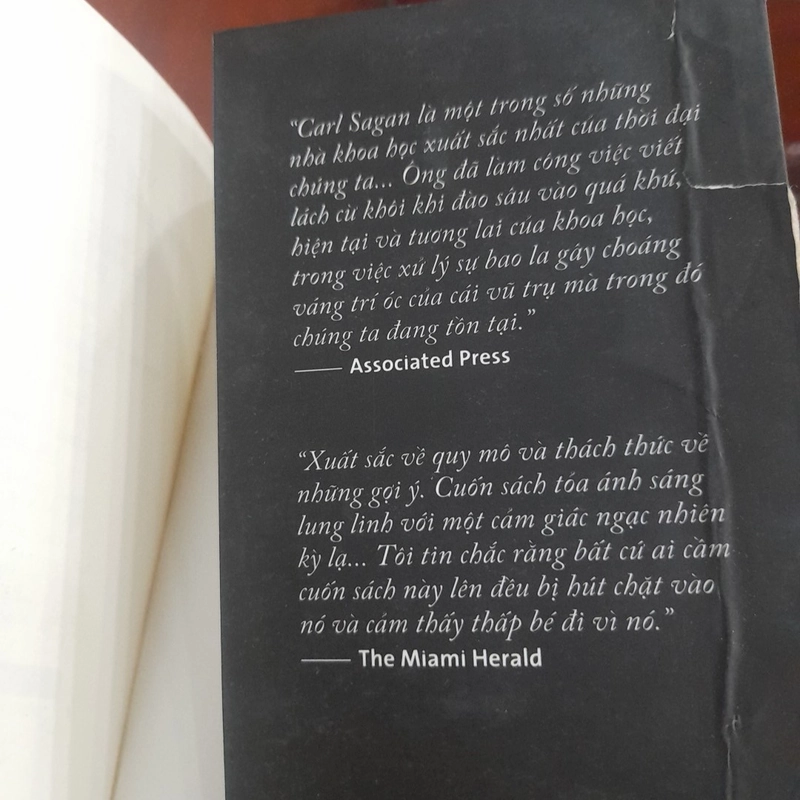 “Carl Sagan là một trong số những
nhà khoa học xuất sắc nhất của thời đại
chúng ta... Ông đã làm công việc viết
lách cừ khôi khi đào sâu vào quá khứ,
hiện tại và tương lai của khoa học,
trong việc xử lý sự bao la gây choáng
váng trí óc của cái vũ trụ mà trong đó
chúng ta đang tồn tại.”
—— Associated Press
“Xuất sắc về quy mô và thách thức về
những gợi ý. Cuốn sách tỏa ánh sáng
lung linh với một cảm giác ngạc nhiên
kỳ lạ... Tôi tin chắc rằng bất cứ ai cầm
cuốn sách này lên đều bị hút chặt vào
nó và cảm thấy thấp bé đi vì nó.”
—— The Miami Herald